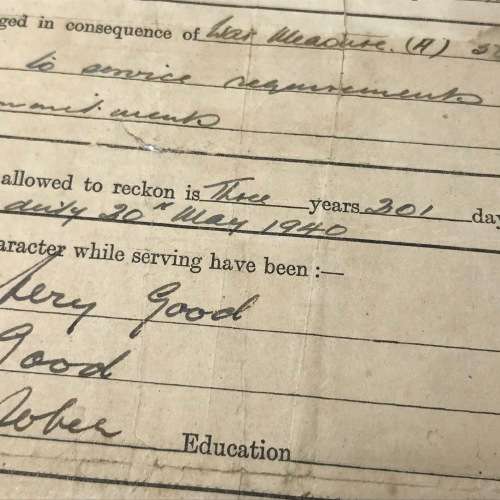 ged in consequence of War Measure. (A)
to service requirements
allowed to reckon is Three years 301 day
duty 20th May 1940
aracter while serving have been :—
Very Good
Good
Sober Education